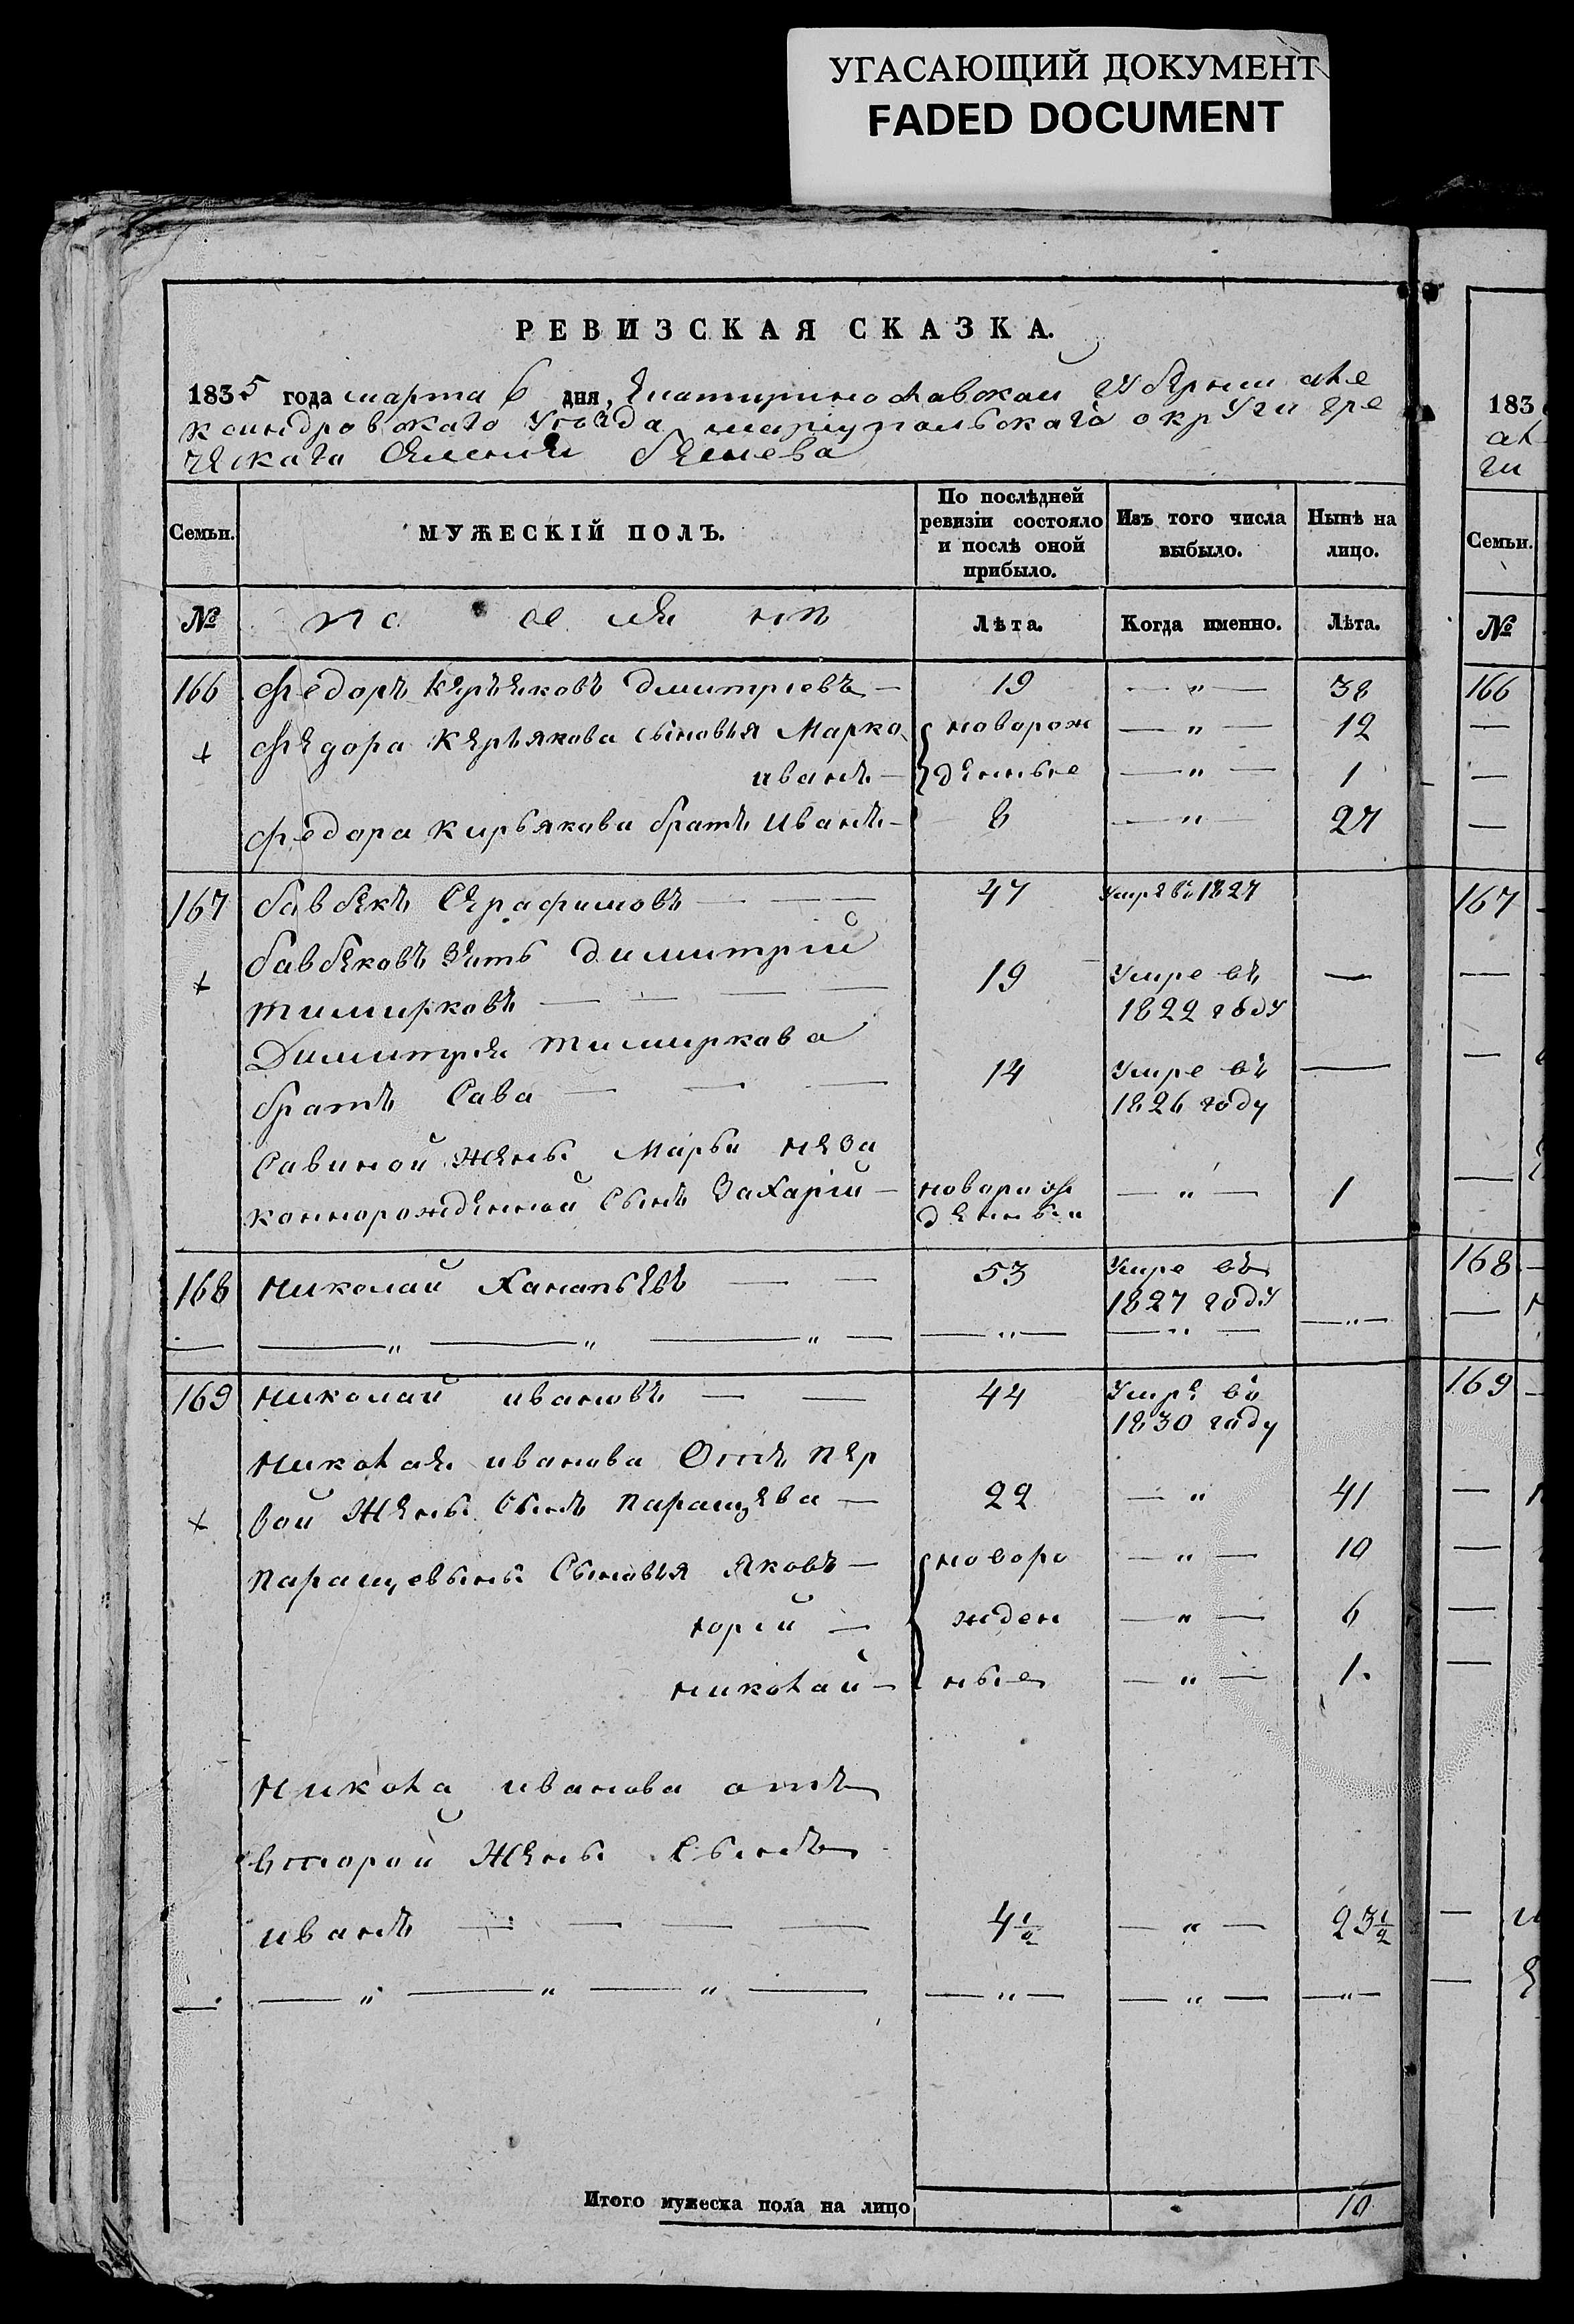 УГАСАЮЩИЙ ДОКУМЕНТ
FADED DOCUMENT
РЕВИЗСКАЯ СКАЗКА.
1835 года марта 6 дня, Екатеринославской губернии але
ксандровскаго уезда мариупольскаго округи гре
ческаго селения бешева
Семьи. МУЖЕСКІЙ ПОЛЪ. По послѣдней ревизіи состояло и послѣ оной прибыло. Изъ того числа выбыло. Нынѣ на лицо.
№ Лѣта. Когда именно. Лѣта.
166 Федоръ Керьяковъ Дмитріевъ — 19 — " — 38
+ Федора Керьякова сыновья Марко новорож — " — 12
иванъ — денные — " — 1
Федора Кирьякова братъ Иванъ — 8 — " — 27
167 бавбекъ Серафимовъ — — 47 Умре въ 1827
бавбековъ зять димитрій
+ тимирковъ — — — — 19 Умре въ —
1822 году
Димитрея тимиркова
братъ Сава — — — 14 Умре въ —
1826 году
Савиной жены Марьи неза
коннорожденной сынъ Захарій — новорож — " — 1
денный
168 Николай Ханапьевъ — — 53 Умре въ
1827 году — " —
— — " — " — " — — " — — " —
169 Николай ивановъ — — 44 Умре въ
1830 году
Николая иванова Отъ пер
+ вой жены сынъ Паращева — 22 — " 41
Паращевыны Сыновья Яковъ — новоро — " — 10
юрій — жден — " — 6
николай — ные — " — 1
Никола иванова отъ
второй жены сынъ
иванъ — — — — 4½ — " — 23½
— — " — " — " — — " — — " — — " —
Итого мужеска пола на лицо 10
183
ал
ги
Семьи.
№
166
—
—
—
167
—
—
—
168
—
169
—
—
—
—
—
—